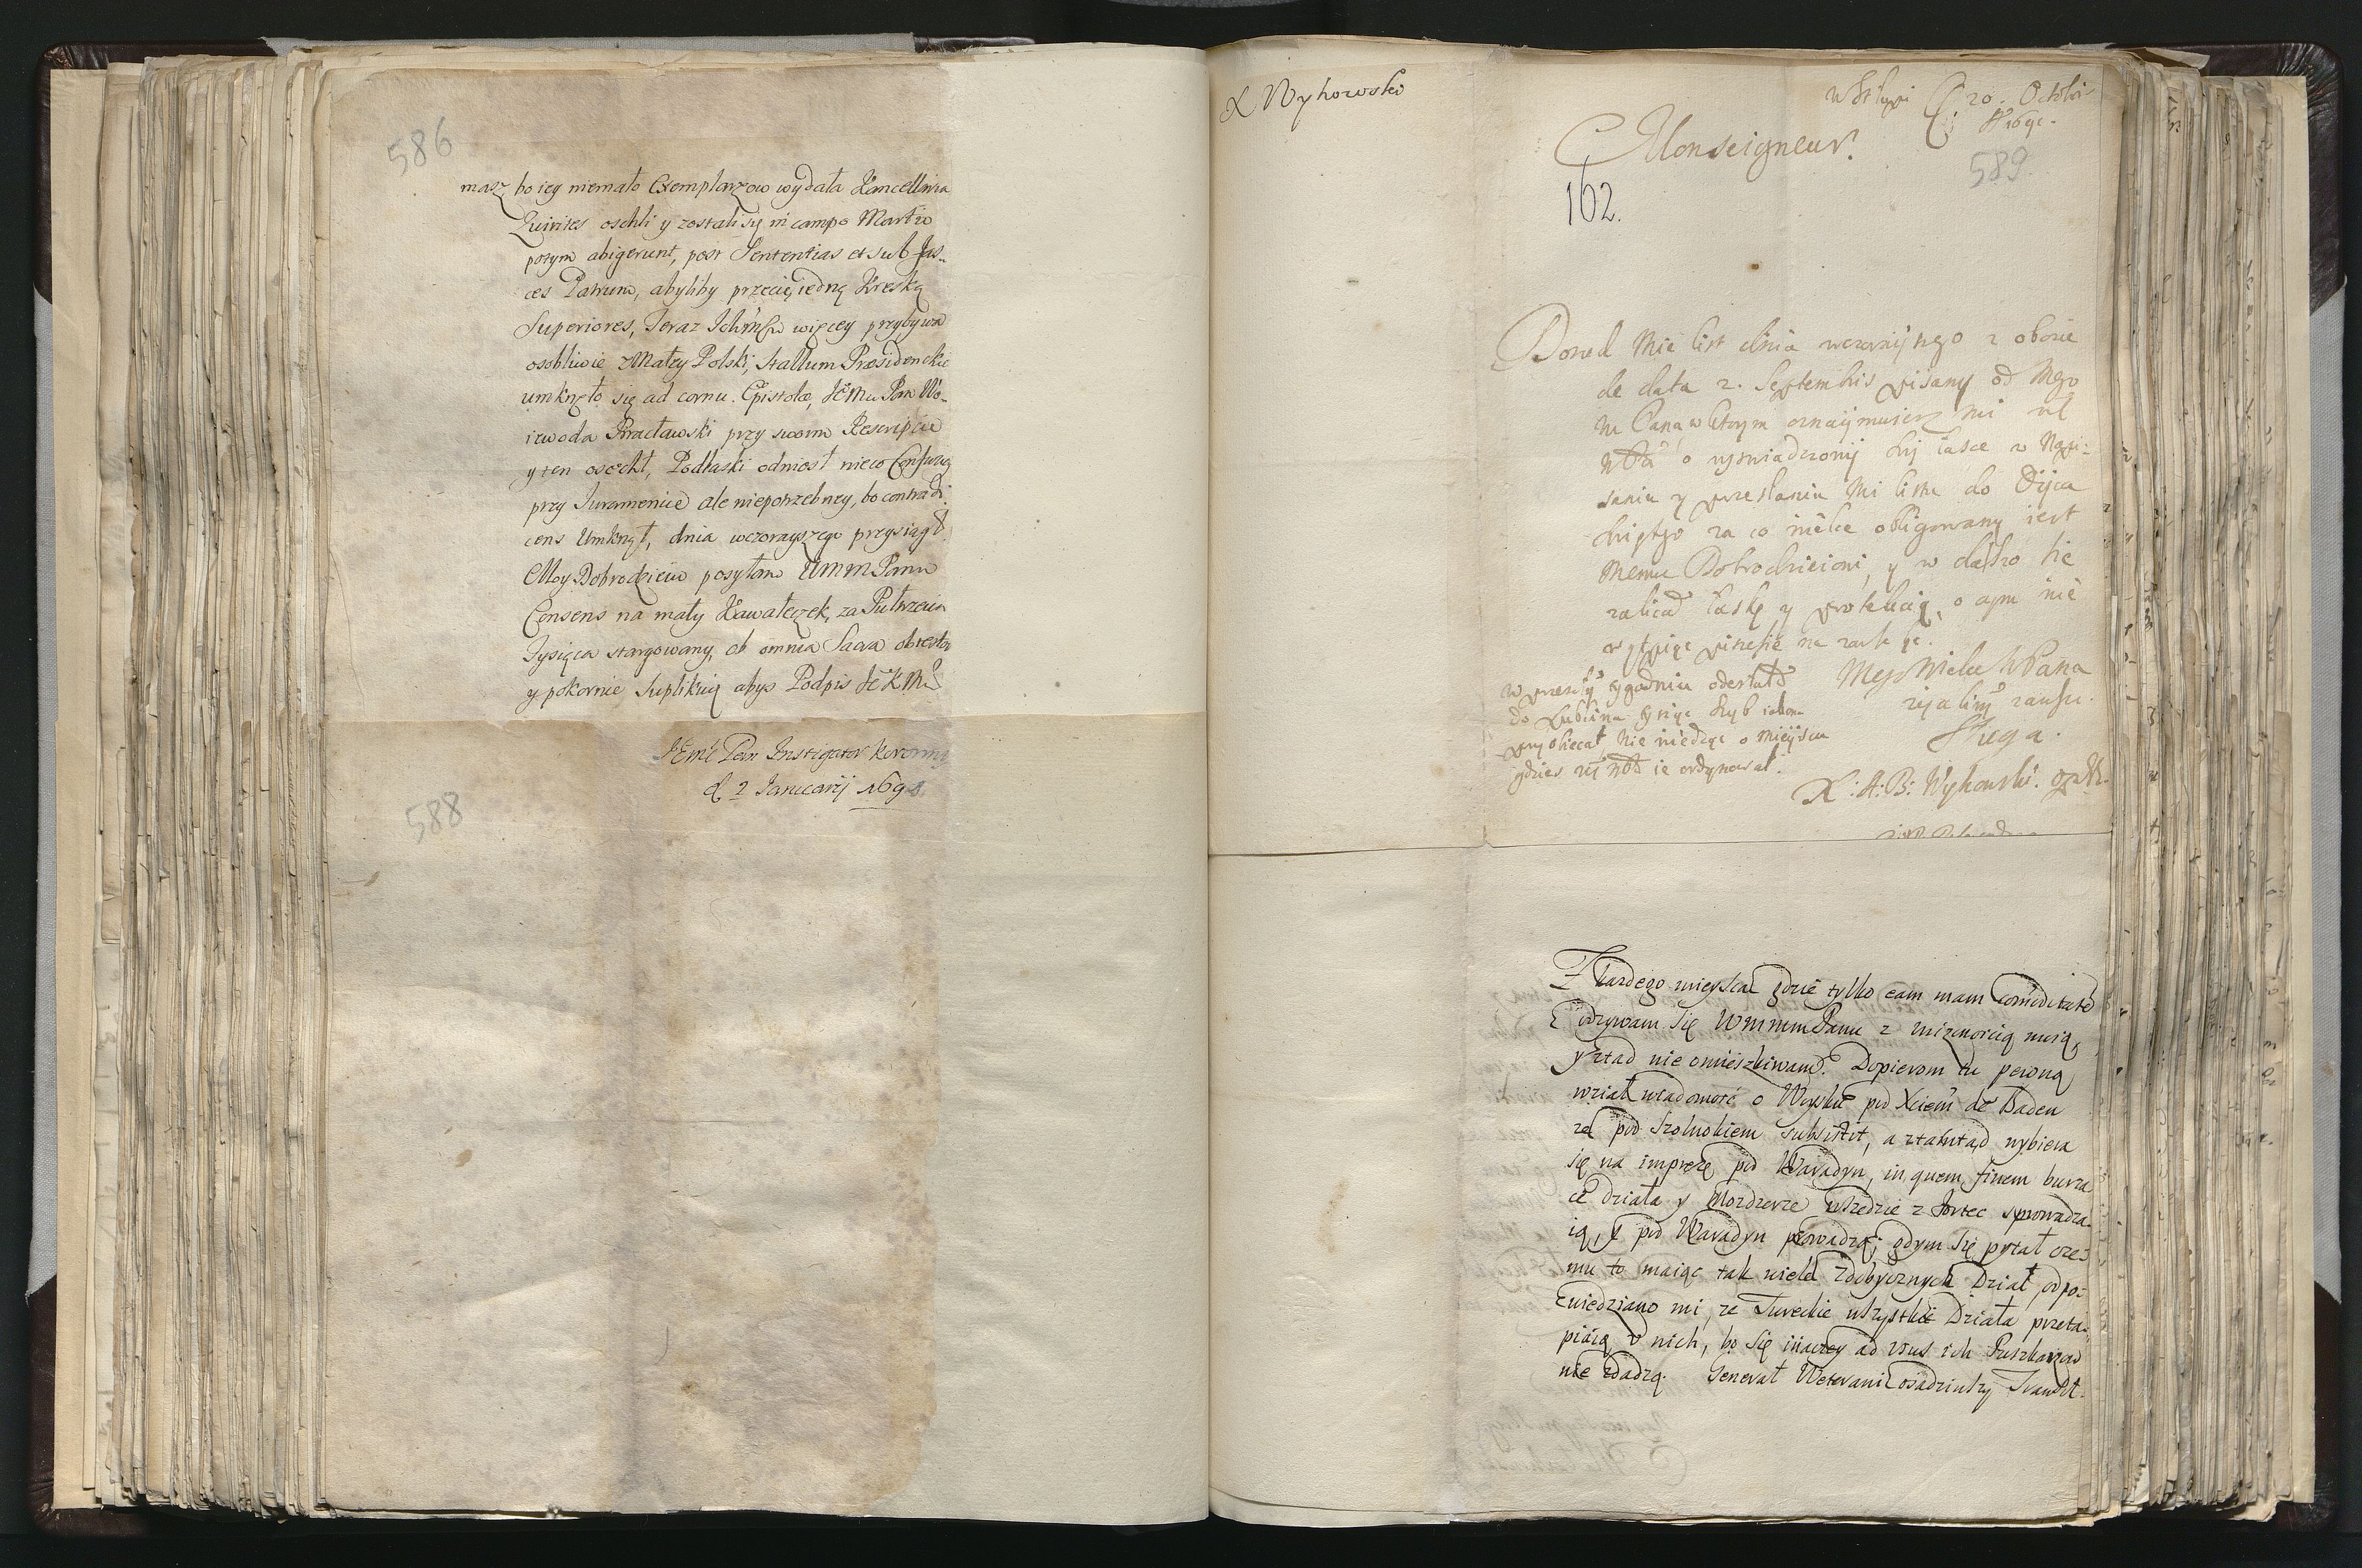 586
masz bo iey niemało Exemplarzow wydała Kancellaria
Quirites oschli y zostali się in campo Martio
potym abigerunt, post Sententias et sub Fas-
ces Patrum, abyliby przecię iedną Kreską
Superiores, Teraz Ichmśw więcey przybywa
osobliwie z Małey Polski, Stallum Præsidenckie
umknęło się ad cornu Epistolæ, Jemu Pan Wo-
iewoda Bracławski przy swoim Rescripcie
y ten osechł, Podlaski odniosł nieco Confusią
przy Iuramencie ale niepotrzebney, bo contradi-
cens Umknął, dnia wczorayszego przysiągł.
Moy Dobrodzieiu posyłam UMMPanu
Consens na mały Kawałeczek, za Pułtrzecia
Tysiąca stargowany, ob omnia Sacra obtestor
y pokornie suplikuię abys Podpis JeKMsci
JEmć Pan Instigator Koronny
d. 2 Januarij 169
588
X Wyhowski
20. Octobr
Monseigneur.
162.
589.
Doszedł mie list dnia wczorajszego z obozu
de data 2. Septembris pisany od Mego
M Pana w ktorym oznaijmuiesz mi
o wyswiadczonij łasce w Napi-
saniu y przesłaniu mi listu do Oijca
Swiętego za co wielce obligowany iest
Memu Dobrodzieiowi, y w dalszo sie
zalicać łaskę y protekcią, o czym nie
wątpiąc piszesię na zawsze.
Mego Wielce MPana
Sługa.
w przeszłÿ tygodniu odesłałe
do Lublina
obiecał, nie wiedząc o mieijscu
ie ordynował.
X: A: B: Wyhowski.
Z kazdego mieysca gdzie tylko eam mam comoditatem
odzywam się WMMMPanu z uniznoscią moią,
y ztąd nie omieszkiwam. Dopierom tu pewną
wział wiadomość o Woysku pod Xciem de Baden
ze pod Szolnokiem subsistit, a ztamtąd wybiera
się na imprezę pod Waradyn, in quem finem burzą-
ce działa y Mozdzerze wszędzie z Fortec sprowadza-
ią, y pod Waradyn prowadzą; gdym się pytał cze-
mu to maiąc tak wiele Zdobycznych Dział odpo-
wiedziano mi, ze Tureckie wszystkie Działa przeta-
piaią u nich, bo się inaczey ad usus ich Puszkarzow
nie zdadzą. Generał Weterani osadziwszy